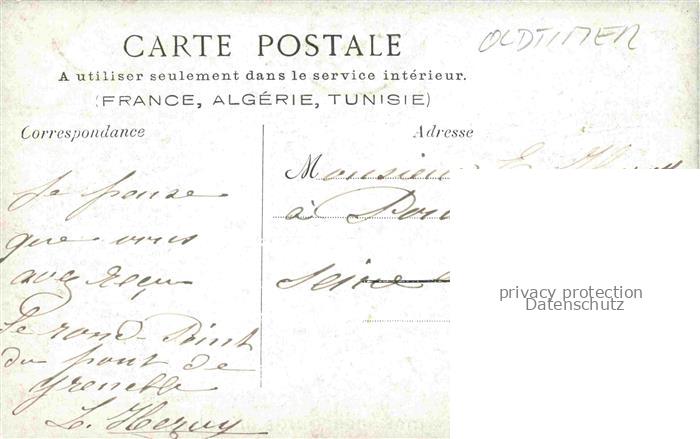 CARTE POSTALE
OLDTIMER
A utiliser seulement dans le service intérieur.
(FRANCE, ALGÉRIE, TUNISIE)
Correspondance
Adresse
Je pense
que vous
avez reçu
Le rond-Point
du pont de
Grenelle
L. Hervy
Monsieur
à
Seine
privacy protection
Datenschutz